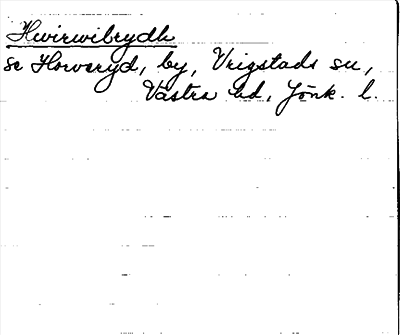 Hwirwilrydh
se Horveryd, by, Vrigstads sn,
Västra hd, Jönk. l.